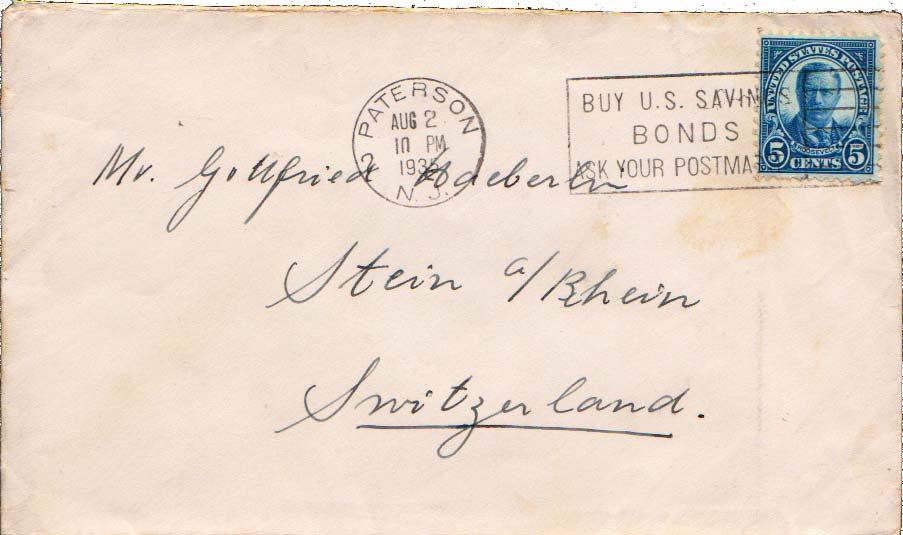 PATERSON
2
AUG 2
10 PM
1935
N. J.
BUY U.S. SAVINGS
BONDS
ASK YOUR POSTMA
UNITED STATES POSTAGE
ROOSEVELT
5 CENTS 5
Mr. Gottfried Haeberlin
Stein a/Rhein
Switzerland.